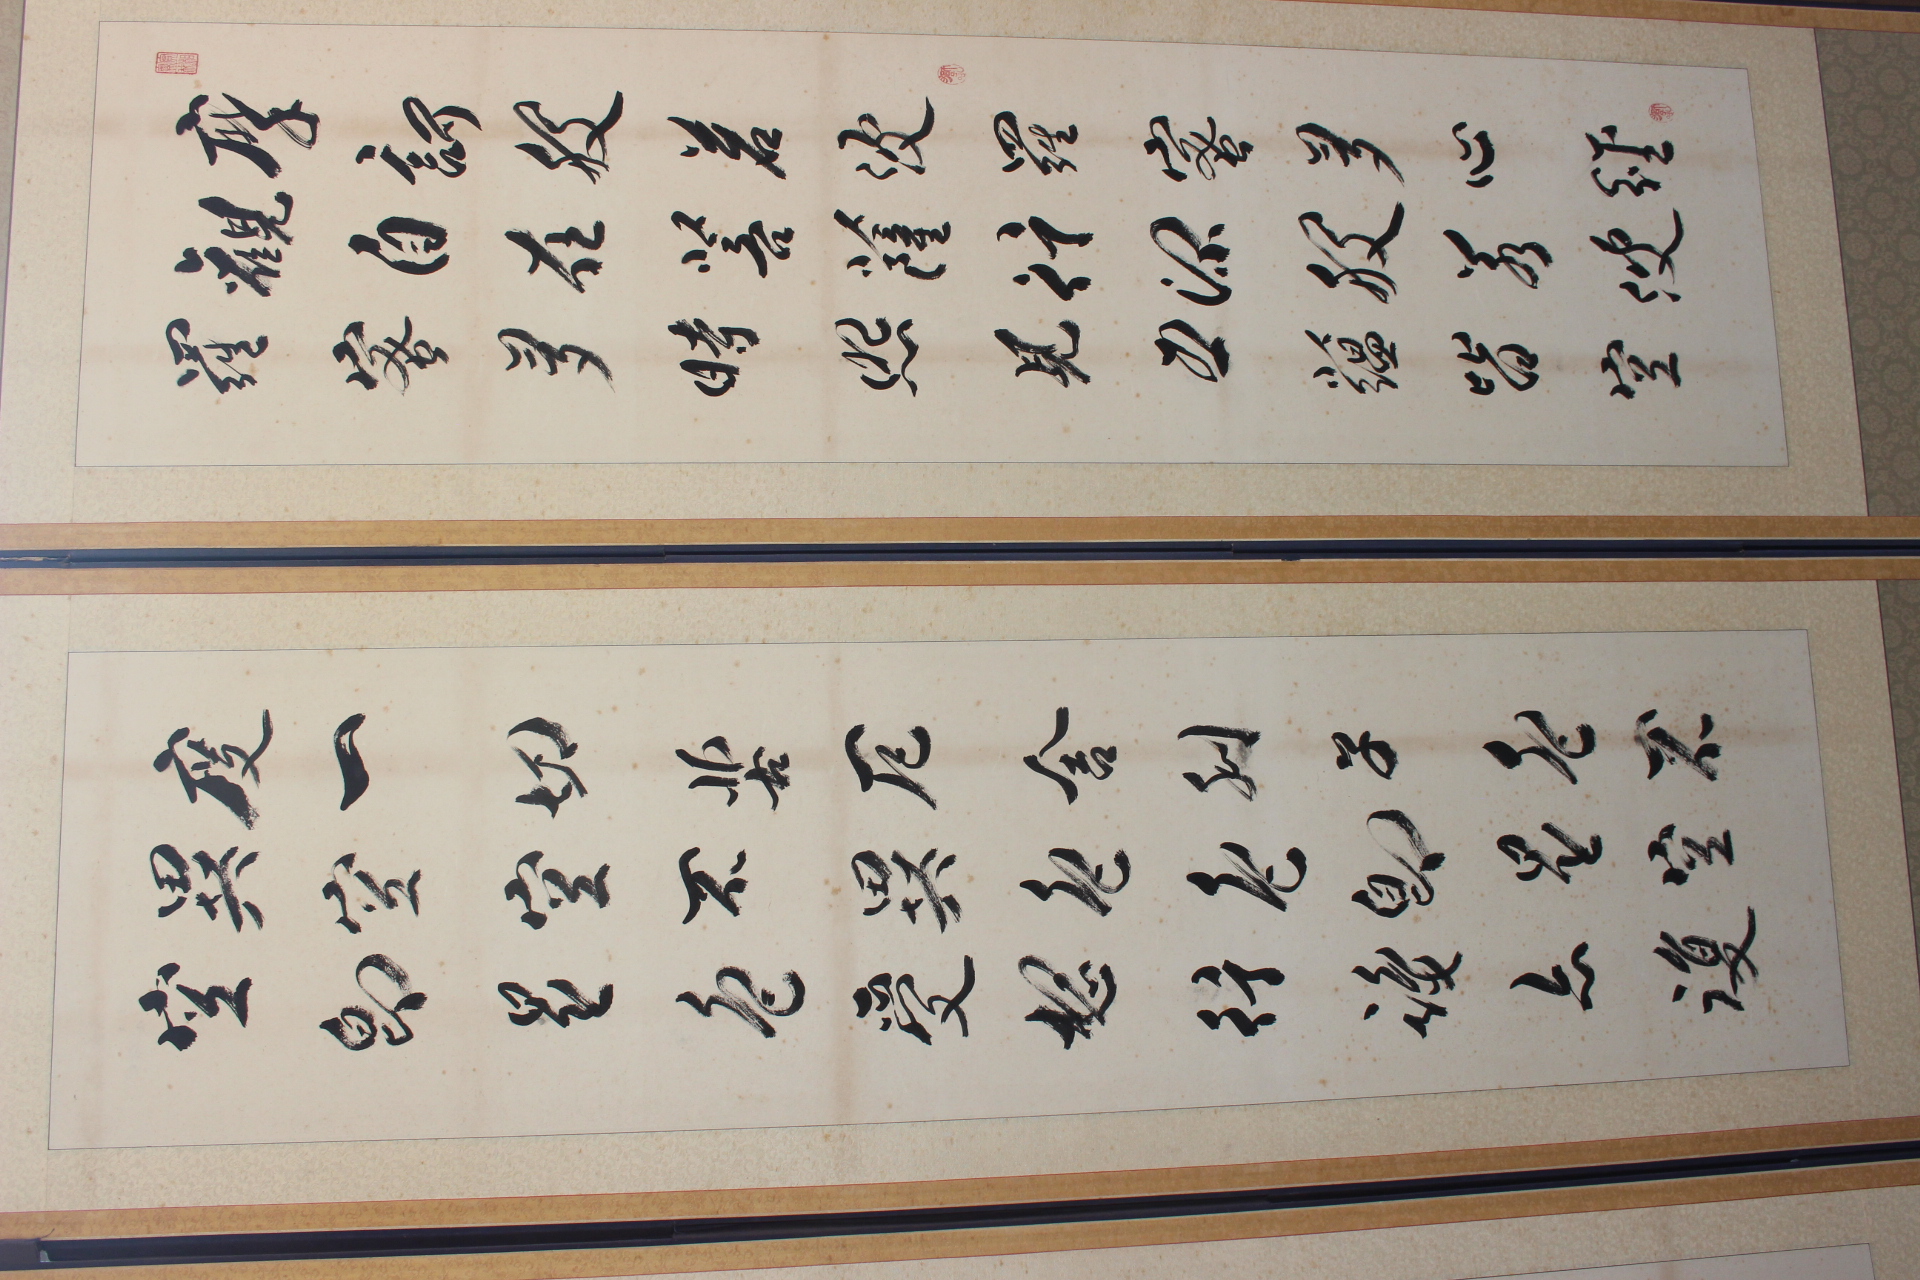 摩訶般若波羅蜜多心經
觀自在菩薩行深般若波
羅蜜多時照見五蘊皆空
度一切苦厄舍利子色不
異空空不異色色即是空
空即是色受想行識亦復